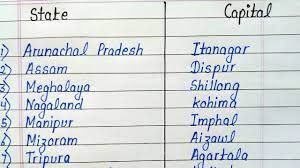 State Capital
1) Arunachal Pradesh Itanagar
2) Assam Dispur
3) Meghalaya Shillong
4) Nagaland kohima
5) Manipur Imphal
6) Mizoram Aizawl
7) Tripura Agartala